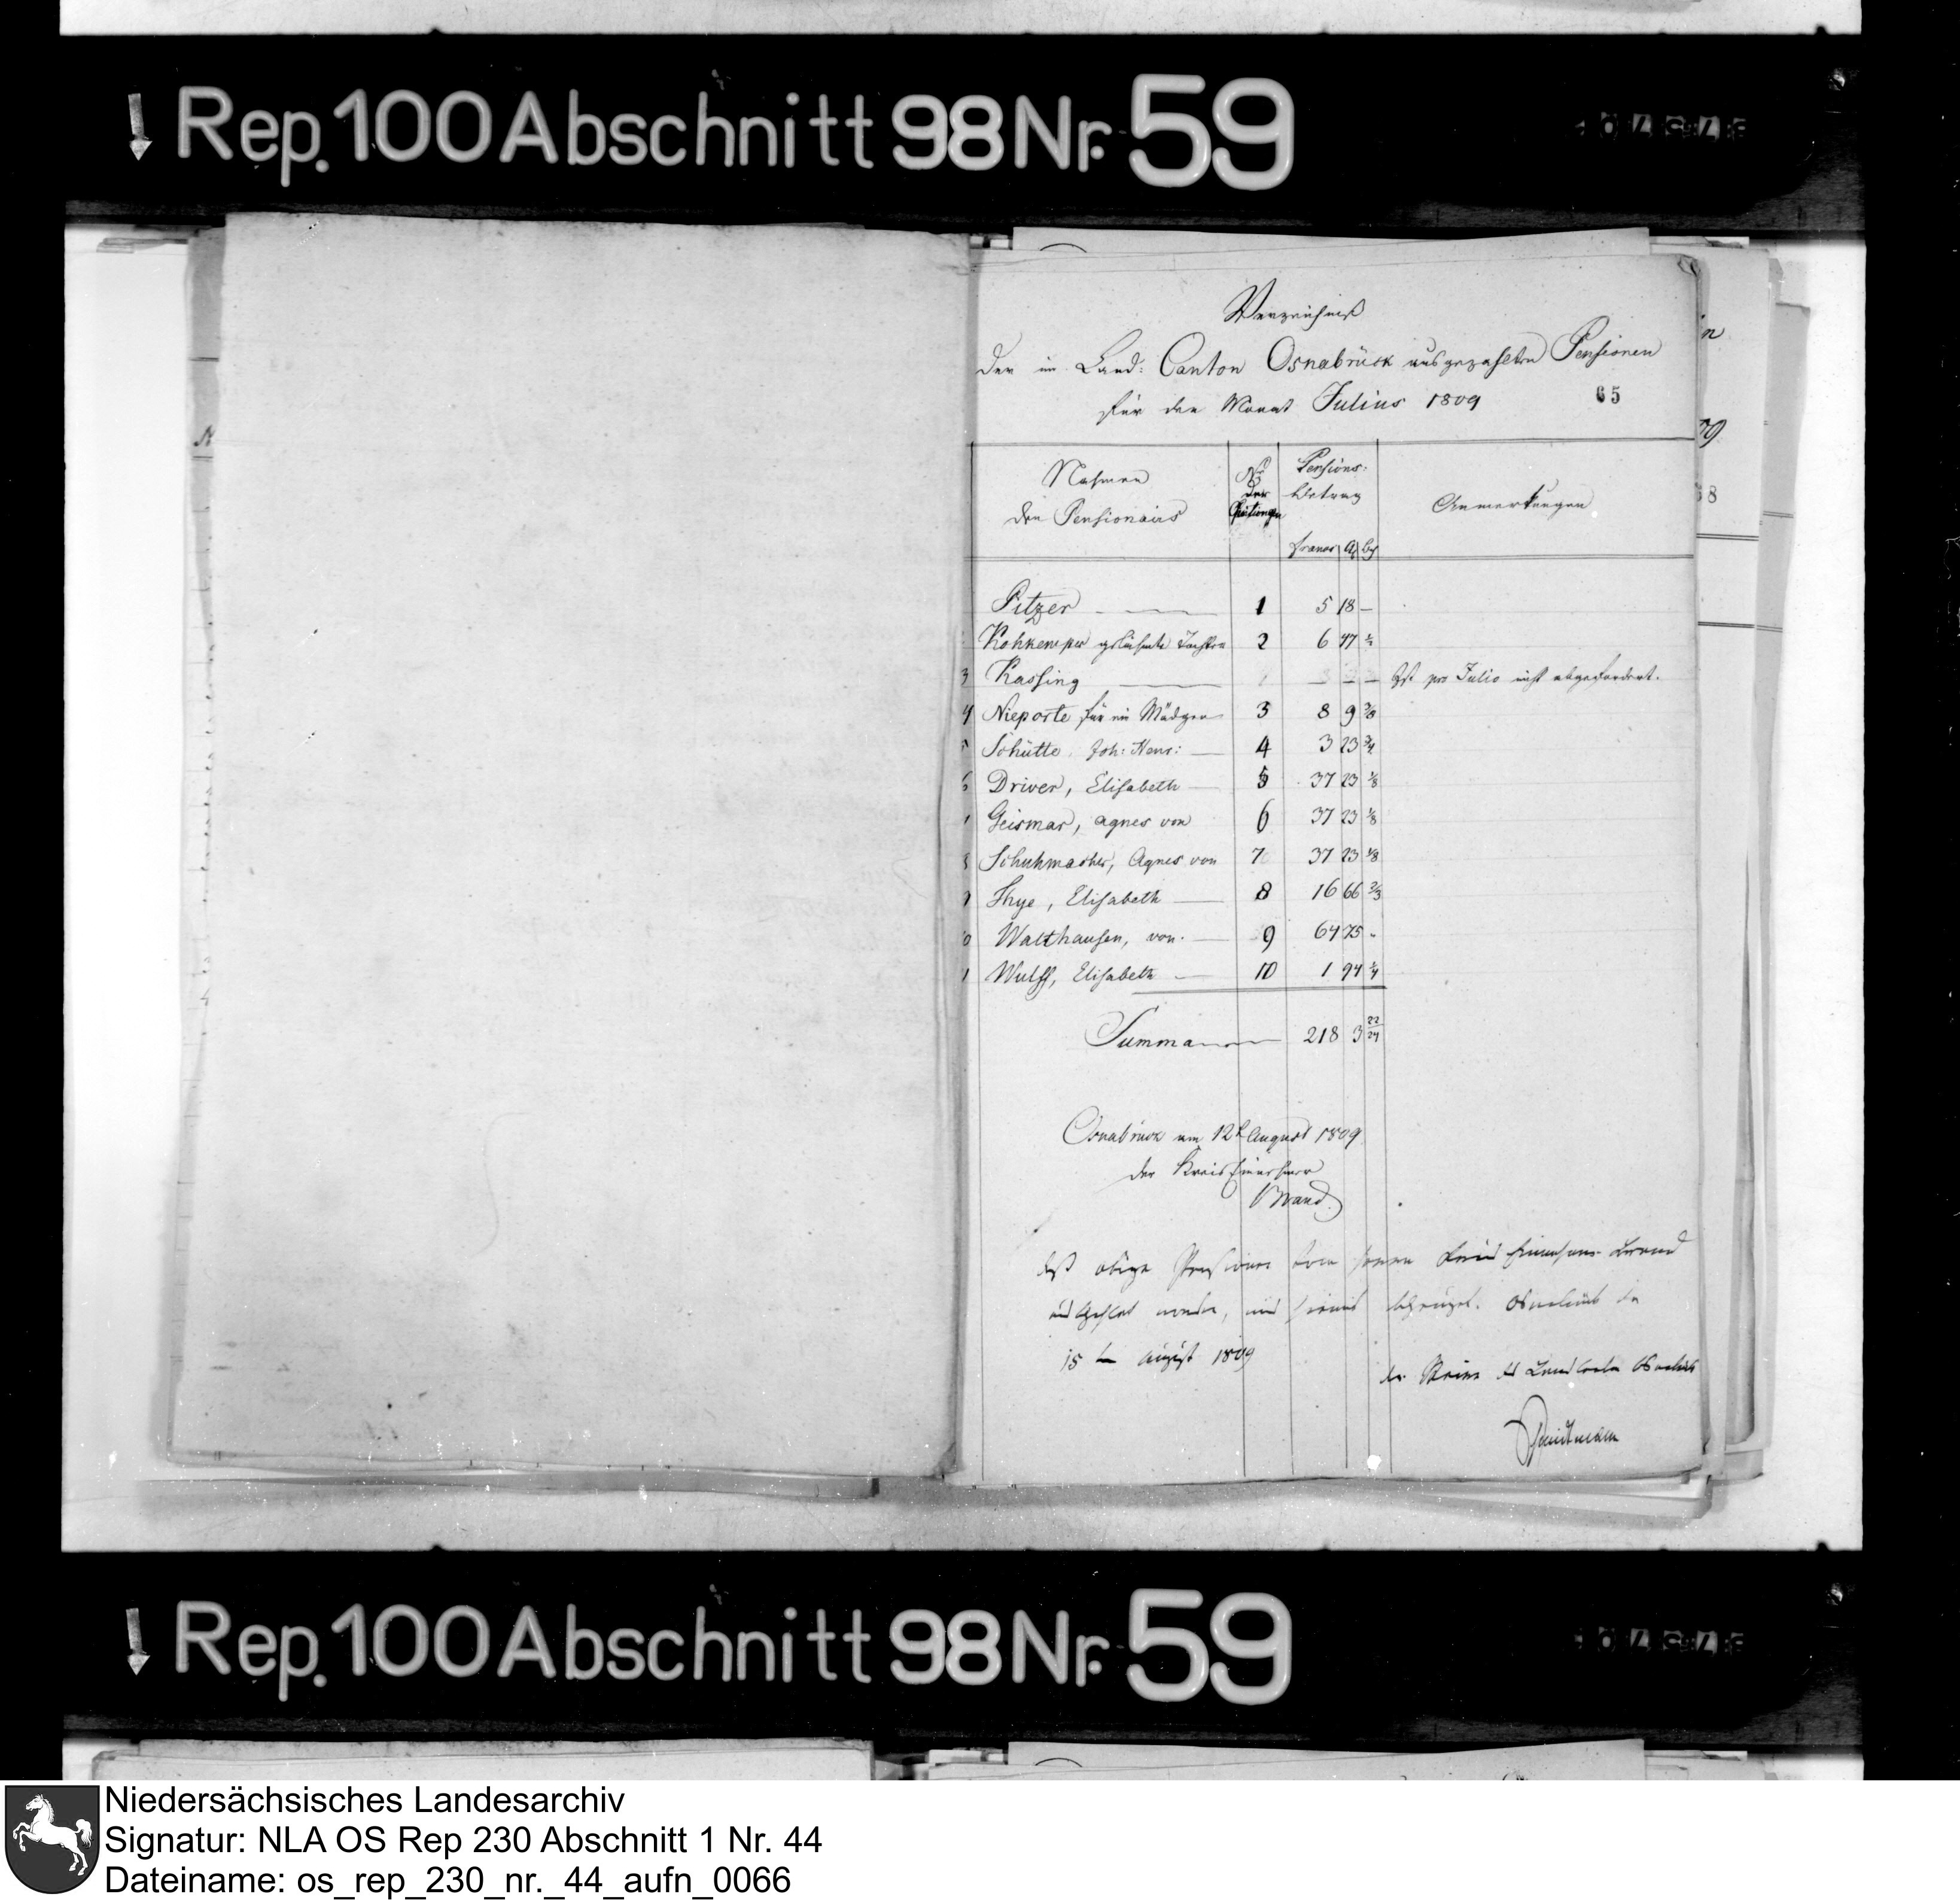 Rep. 100 Abschnitt 98 Nr. 59
Verzeichniß
der im Land: Canton Osnabrück ausgezahlten Pensionen
für den Monat Julius 1809
65
Nahmen
der Pensionairs
No
der
Quitungen
Pensions-
Betrag
Anmerkungen
francs
Pitzer 1 5 18 —
Kohkemper gelähmte Tochter 2 6 47
3 Kassing — Ist pro Julio nicht abgefordert.
4 Nieporte für ein Mädgen 3 8 9 3/8
5 Schütte, Joh: Henr: — 4 3 23 3/4
6 Driver, Elisabeth — 5 37 23 1/8
Geismar, Agnes von 6 37 23 1/8
Schuhmacher, Agnes von 7 37 23 1/8
Thye, Elisabeth — 8 16 66 2/3
Walthausen, von. — 9 64 75 -
Wulff, Elisabeth — 10 1 94 1/4
Summa 218 3 22/24
Osnabrück am 12t August 1809
der Kreis Einnehmer
Brand
daß obige Pensionen vom Herrn Kreis Einnehmer Brand
ausbezahlt worden, wird hiemit bezeuget. Osnabrück den
15 ten August 1809
der Maire des Land Canton Osnabrück
Rep. 100 Abschnitt 98 Nr. 59
Niedersächsisches Landesarchiv
Signatur: NLA OS Rep 230 Abschnitt 1 Nr. 44
Dateiname: os_rep_230_nr._44_aufn_0066